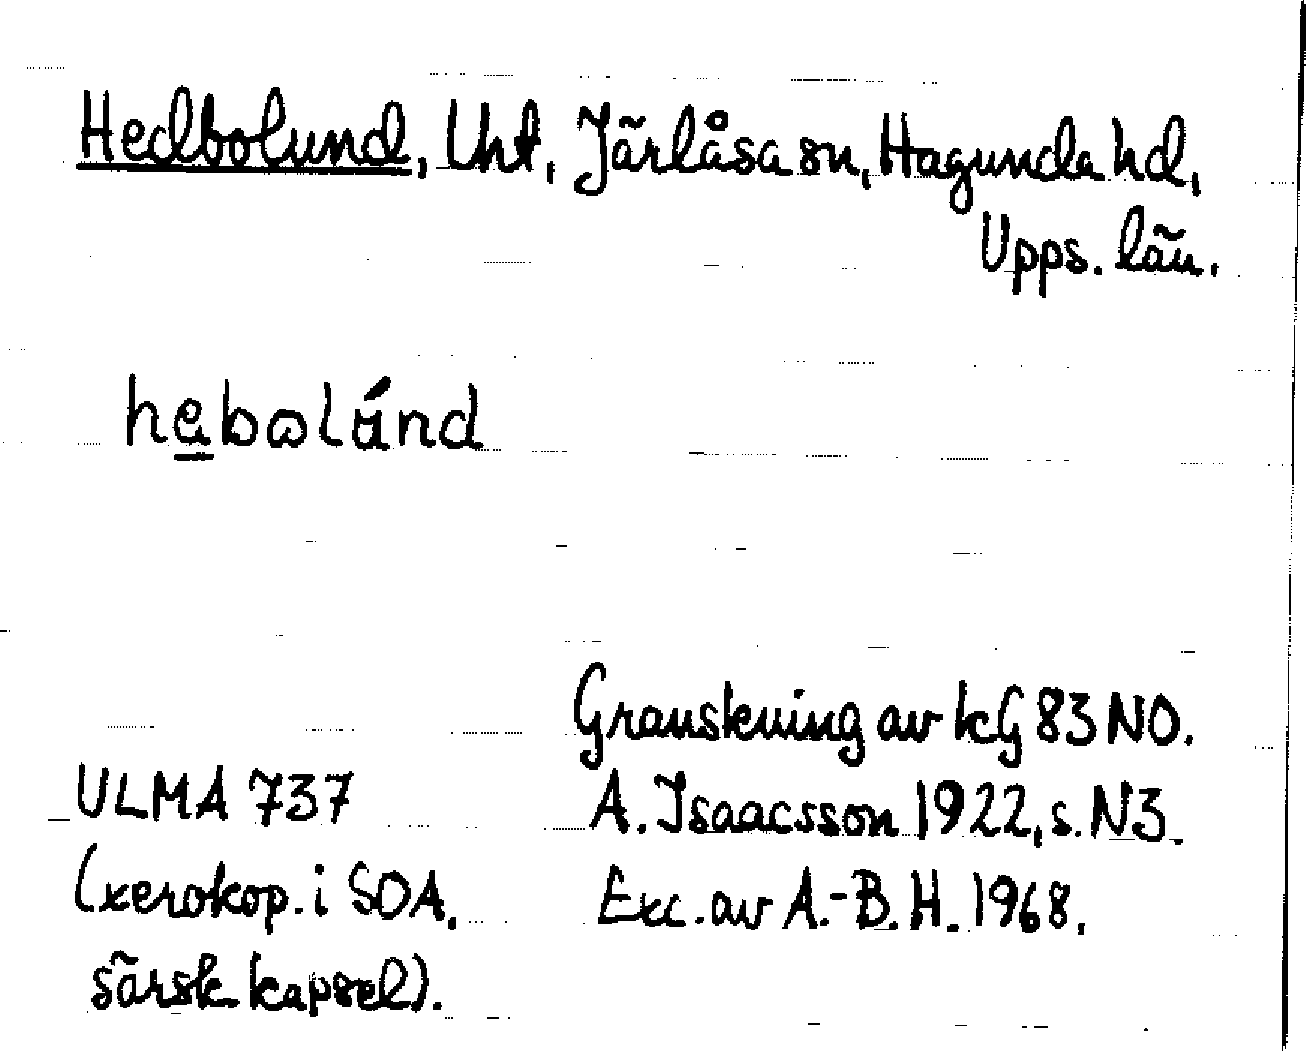 Hedbolund, Unt, Järlåsa sn, Hagunda hd,
Upps. län.
hebolánd
Granskning av kG 83 NO.
ULMA 737 A. Isaacsson 1922, s. N3.
(xerokop. i SOA, Exc. av A.-B. H. 1968.
särsk kapsel).